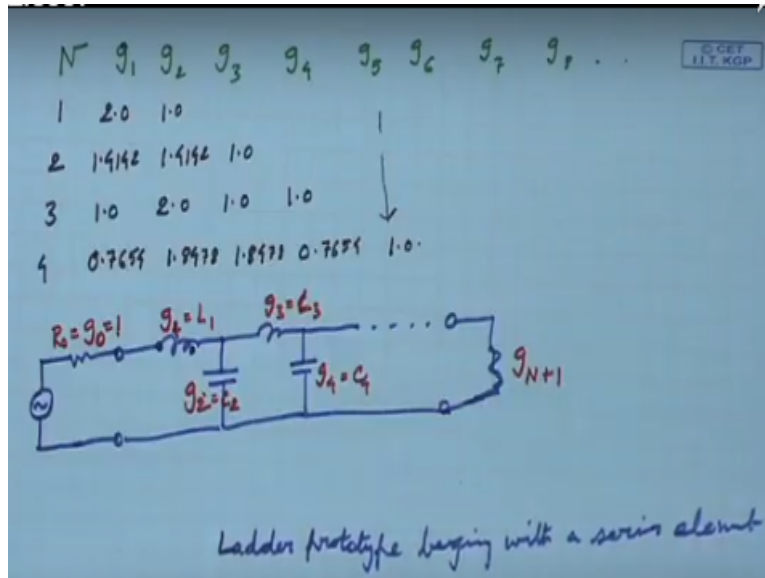 N g1 g2 g3 g4 g5 g6 g7 g8 ..
© CET
I.I.T. KGP
1 2.0 1.0
2 1.4142 1.4142 1.0
3 1.0 2.0 1.0 1.0
4 0.7654 1.8478 1.8478 0.7654 1.0.
g3=L3
R0=g0=1 g1=L1
g2=C2 g4=C4 gN+1
Ladder prototype beging with a series element